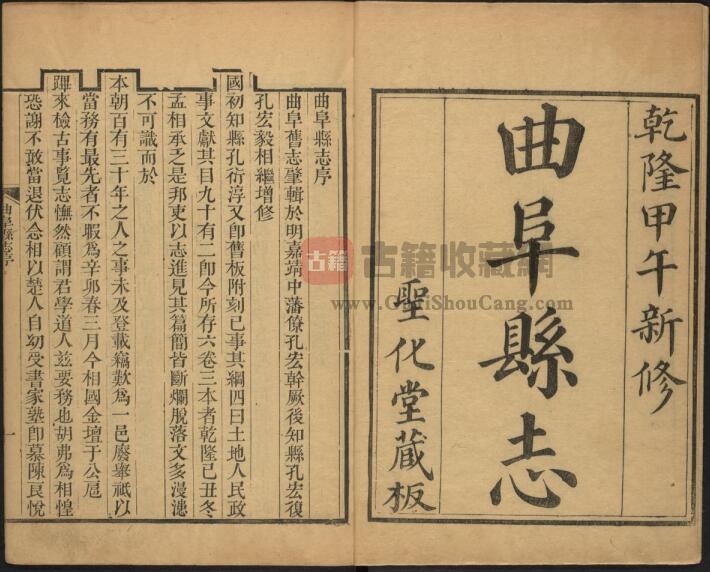 乾隆甲午新修
曲阜縣志
聖化堂藏板
曲阜縣志序
曲阜舊志肇輯於明嘉靖中藩僚孔宏幹厥後知縣孔宏復
孔宏毅相繼增修
國初知縣孔衍淳又卽舊板附刻已事其綱四曰土地人民政
事文獻其目九十有二卽今所存六卷三本者乾隆己丑冬
孟相承之是邦吏以志進見其篇簡皆斷爛脫落文多漫漶
不可識而於
本朝百有三十年之人之事未及登載竊歎爲一邑廢舉祗以
當務有最先者不暇爲辛卯春三月今相國金壇于公扈
蹕來檢古事覽志憮然顧謂君學道人玆要務也胡弗爲相惶
恐謝不敢當退伏念相以楚人自幼受書家塾卽慕陳良悅
曲阜縣志序
一
古籍
古籍收藏網
www.GuJiShouCang.com